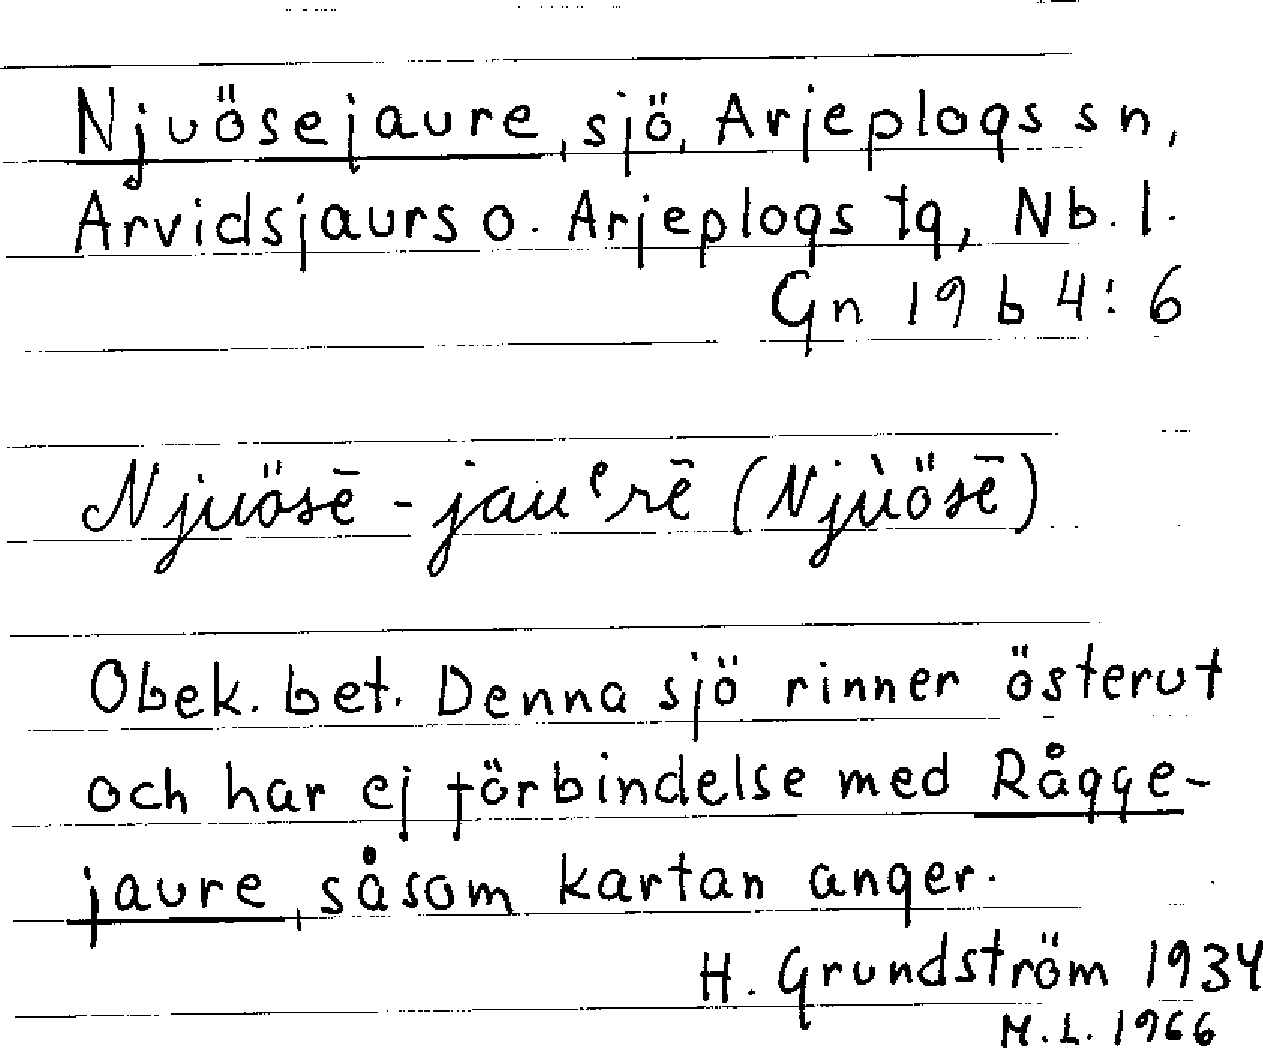 Njuösejaure, sjö, Arjeplogs sn,
Arvidsjaurs o. Arjeplogs tg, Nb. l.
Gn 19 b 4:6
Njuösē - jauᵉrē (Njùösē)
Obek. bet. Denna sjö rinner österut
och har ej förbindelse med Rågge-
jaure, såsom kartan anger.
H. Grundström 1934
M.L. 1966